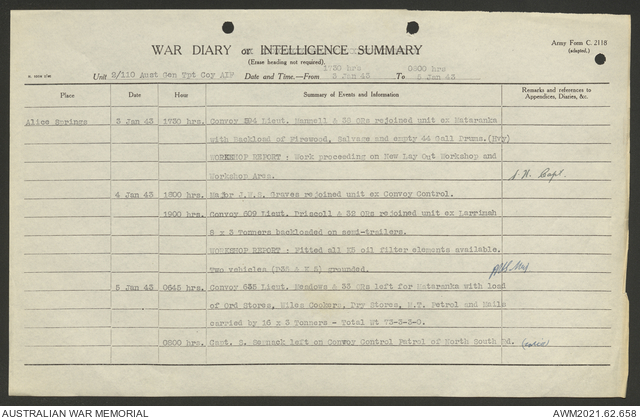 Army Form C. 2118
(adapted.)
WAR DIARY or INTELLIGENCE SUMMARY
(Erase heading not required).
1730 hrs 0800 hrs
Unit 2/110 Aust Gen Tpt Coy AIF Date and Time.—From 3 Jan 43 To 5 Jan 43
Place Date Hour Summary of Events and Information Remarks and references to Appendices, Diaries, &c.
Alice Springs 3 Jan 43 1730 hrs. Convoy 594 Lieut. & 38 ORs rejoined unit ex Mataranka
with Backload of Firewood, Salvage and empty 44 Gall Drums.(Hvy)
WORKSHOP REPORT : Work proceeding on New Lay Out Workshop and
Workshop Area. Capt.
4 Jan 43 1800 hrs. Major J.W.S. Graves rejoined unit ex Convoy Control.
1900 hrs. Convoy 609 Lieut. Driscoll & 32 ORs rejoined unit ex Larrimah
8 x 3 Tonners backloaded on semi-trailers.
WORKSHOP REPORT : Fitted all K5 oil filter elements available.
Two vehicles grounded.
5 Jan 43 0645 hrs. Convoy 635 Lieut. Meadows & 33 ORs left for Mataranka with load
of Ord Stores, Wiles Cookers, Dry Stores, M.T. Petrol and Mails
carried by 16 x 3 Tonners - Total Wt 73-3-3-0.
0800 hrs. Capt. S. left on Convoy Control Patrol of North South Rd.
AUSTRALIAN WAR MEMORIAL AWM2021.62.658